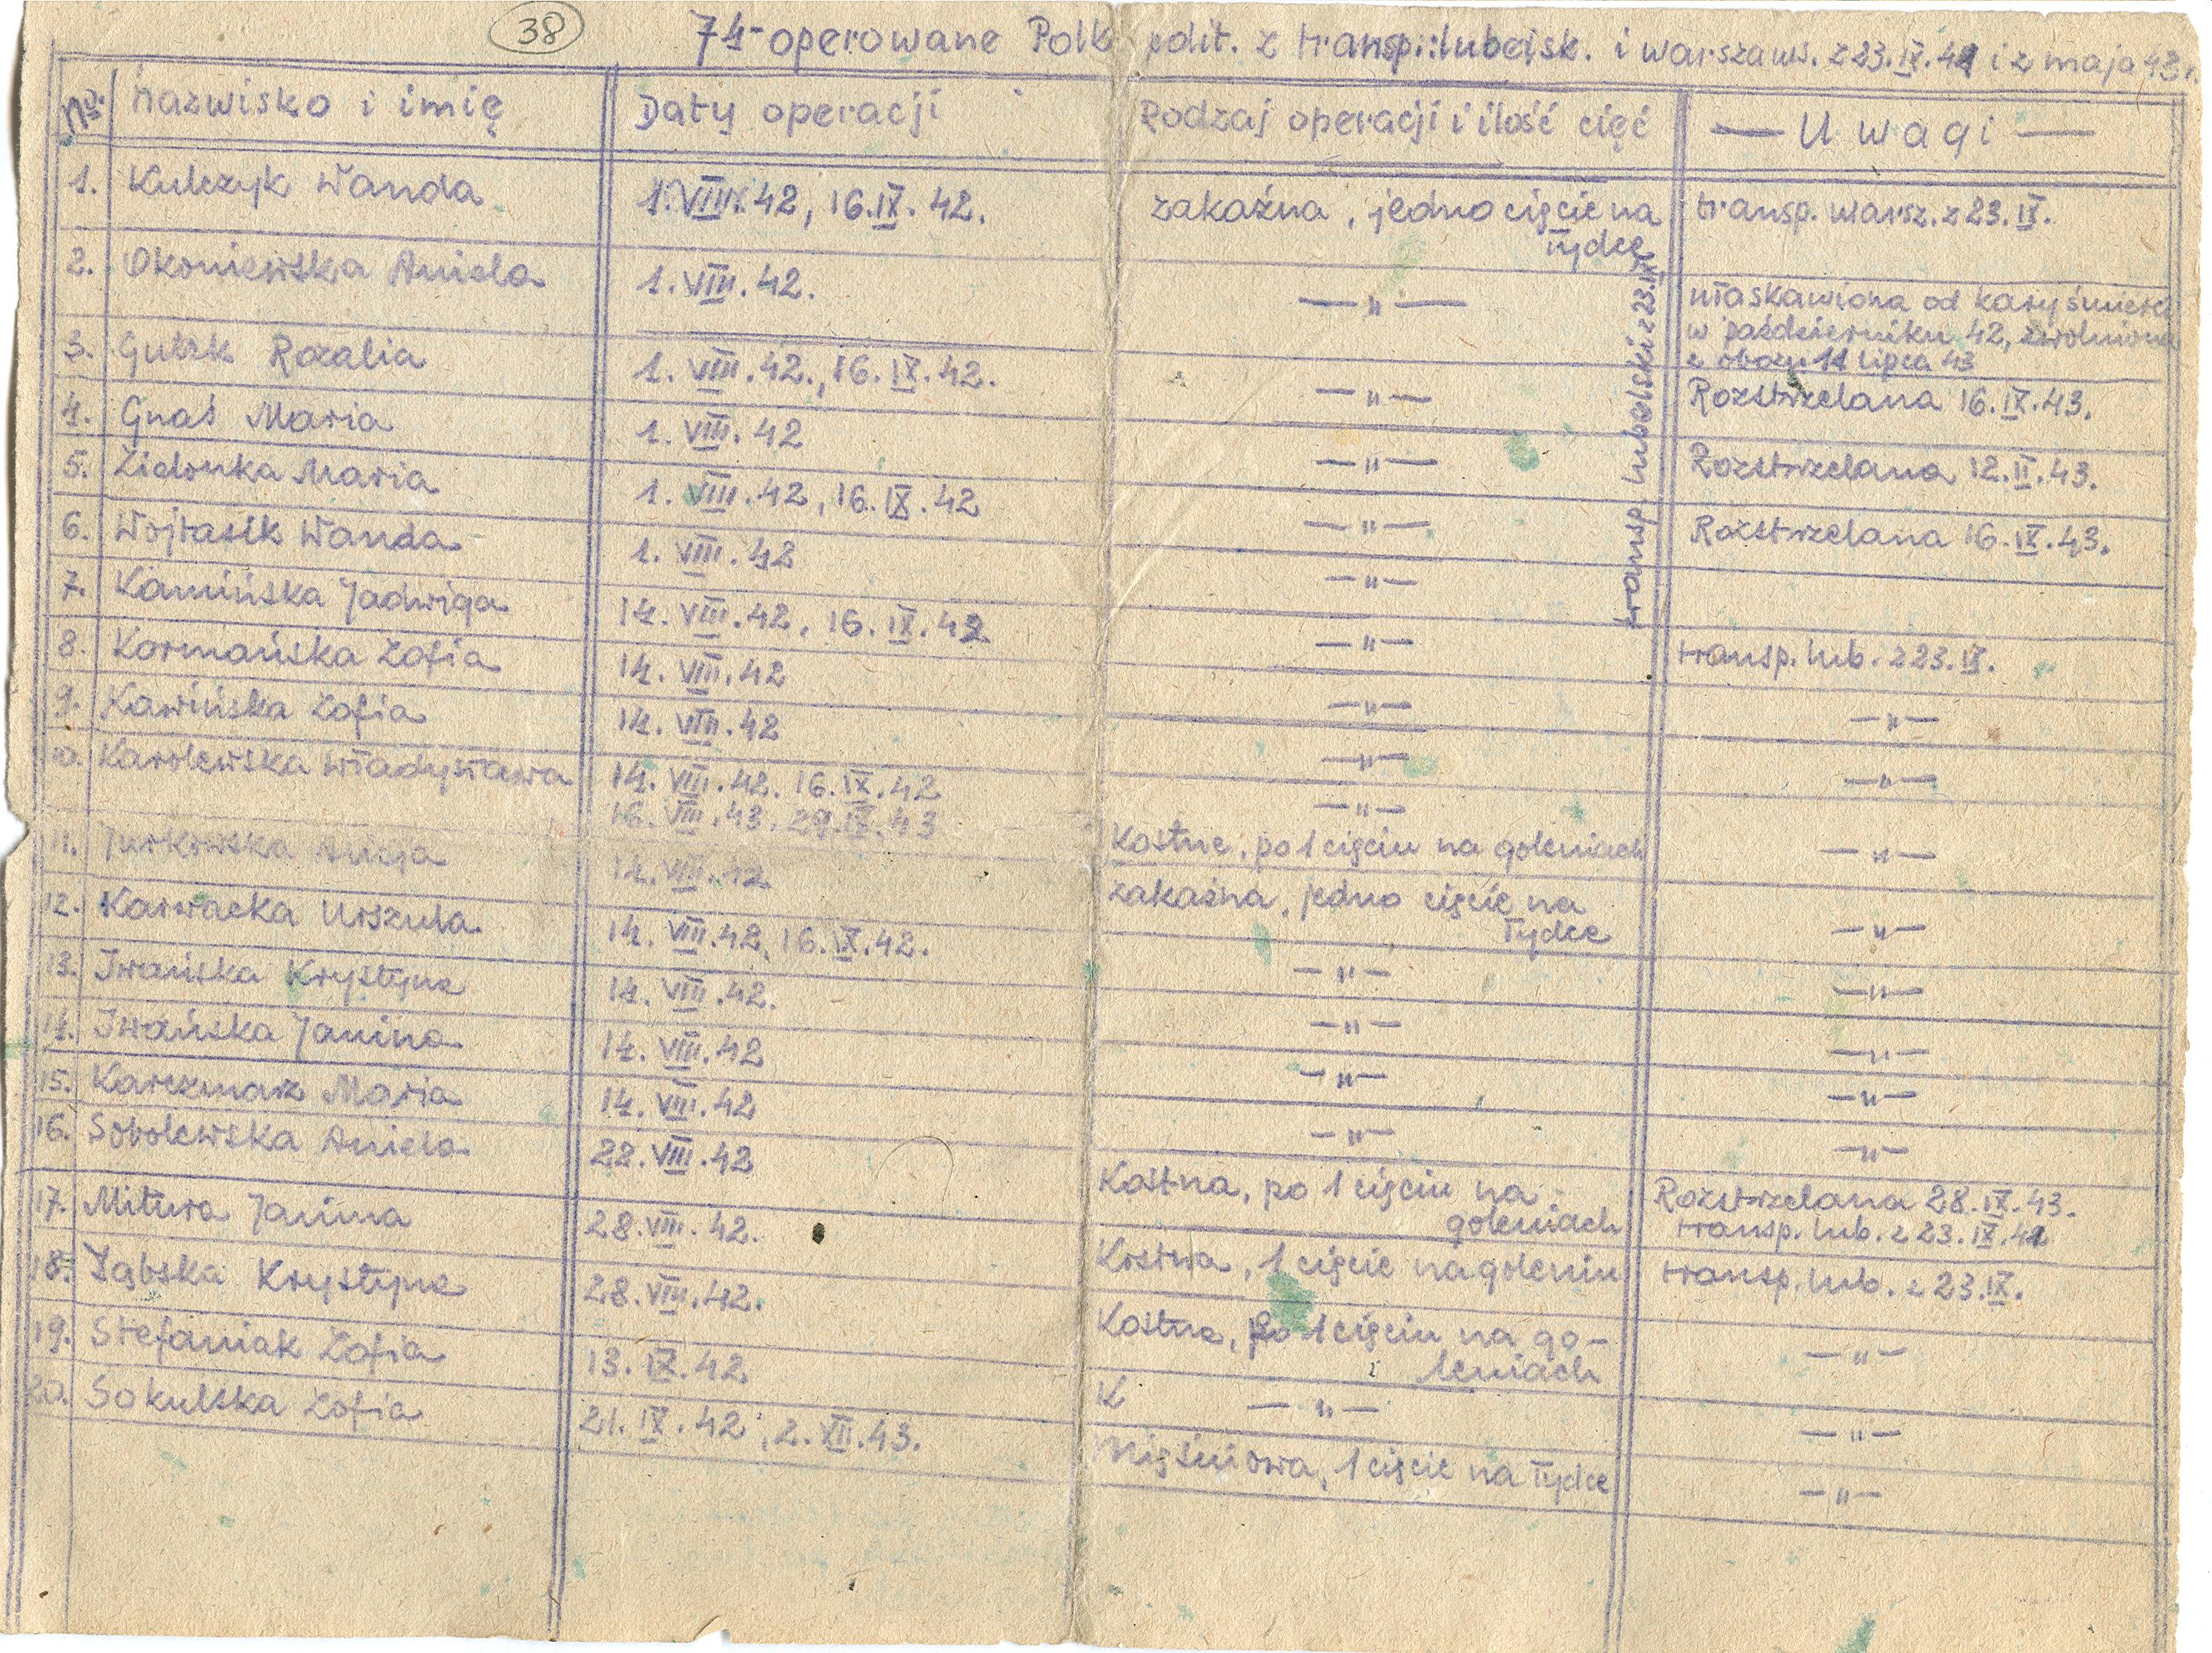 38
74-operowane Polk polit. z transp.:lubelsk. i warszaws. z 23.IX.41 i z maja 43r.
No. Nazwisko i imię Daty operacji Rodzaj operacji i ilość cięć — Uwagi —
1. Kulczyk Wanda 1.VIII.42, 16.IX.42. zakaźna, jedno cięcie na transp. warsz. z 23.IX.
łydce
2. Okoniewska Aniela 1.VIII.42. —〃— ułaskawiona od kary śmierci
w październiku 42, zwolniona
z obozu 11 lipca 43
3. Gutek Rozalia 1.VIII.42., 16.IX.42. —〃— Rozstrzelana 16.IX.43.
4. Gnaś Maria 1.VIII.42 —〃— Rozstrzelana 12.II.43.
5. Zielonka Maria 1.VIII.42, 16.IX.42 —〃— Rozstrzelana 16.IX.43.
6. Wojtasik Wanda 1.VIII.42 —〃—
transp. lubelski z 23.IX
7. Kamińska Jadwiga 14.VIII.42, 16.IX.42 —〃— transp. lub. z 23.IX.
8. Kormańska Zofia 14.VIII.42 —〃— —〃—
9. Kawińska Zofia 14.VIII.42 —〃— —〃—
10. Karolewska Władysława 14.VIII.42. 16.IX.42 —〃—
16.VIII.43. 29.IX.43 Kostne, po 1 cięciu na goleniach —〃—
11. Jurkowska Alicja 14.VIII.42 zakaźna, jedno cięcie na
łydce —〃—
12. Karwacka Urszula 14.VIII.42, 16.IX.42. —〃— —〃—
13. Iwańska Krystyna 14.VIII.42. —〃— —〃—
14. Iwańska Janina 14.VIII.42 —〃— —〃—
15. Karczmarz Maria 14.VIII.42 —〃— —〃—
16. Sobolewska Aniela 22.VIII.42 Kostna, po 1 cięciu na Rozstrzelana 28.IX.43.
goleniach transp. lub. z 23.IX.41
17. Mitura Janina 28.VIII.42. Kostna, 1 cięcie na goleniu transp. lub. z 23.IX.
18. Dąbska Krystyna 28.VIII.42. Kostna, po 1 cięciu na go-
leniach —〃—
19. Stefaniak Zofia 13.IX.42 K —〃— —〃—
20. Sokulska Zofia 21.IX.42, 2.XII.43. Mięśniowa, 1 cięcie na łydce —〃—